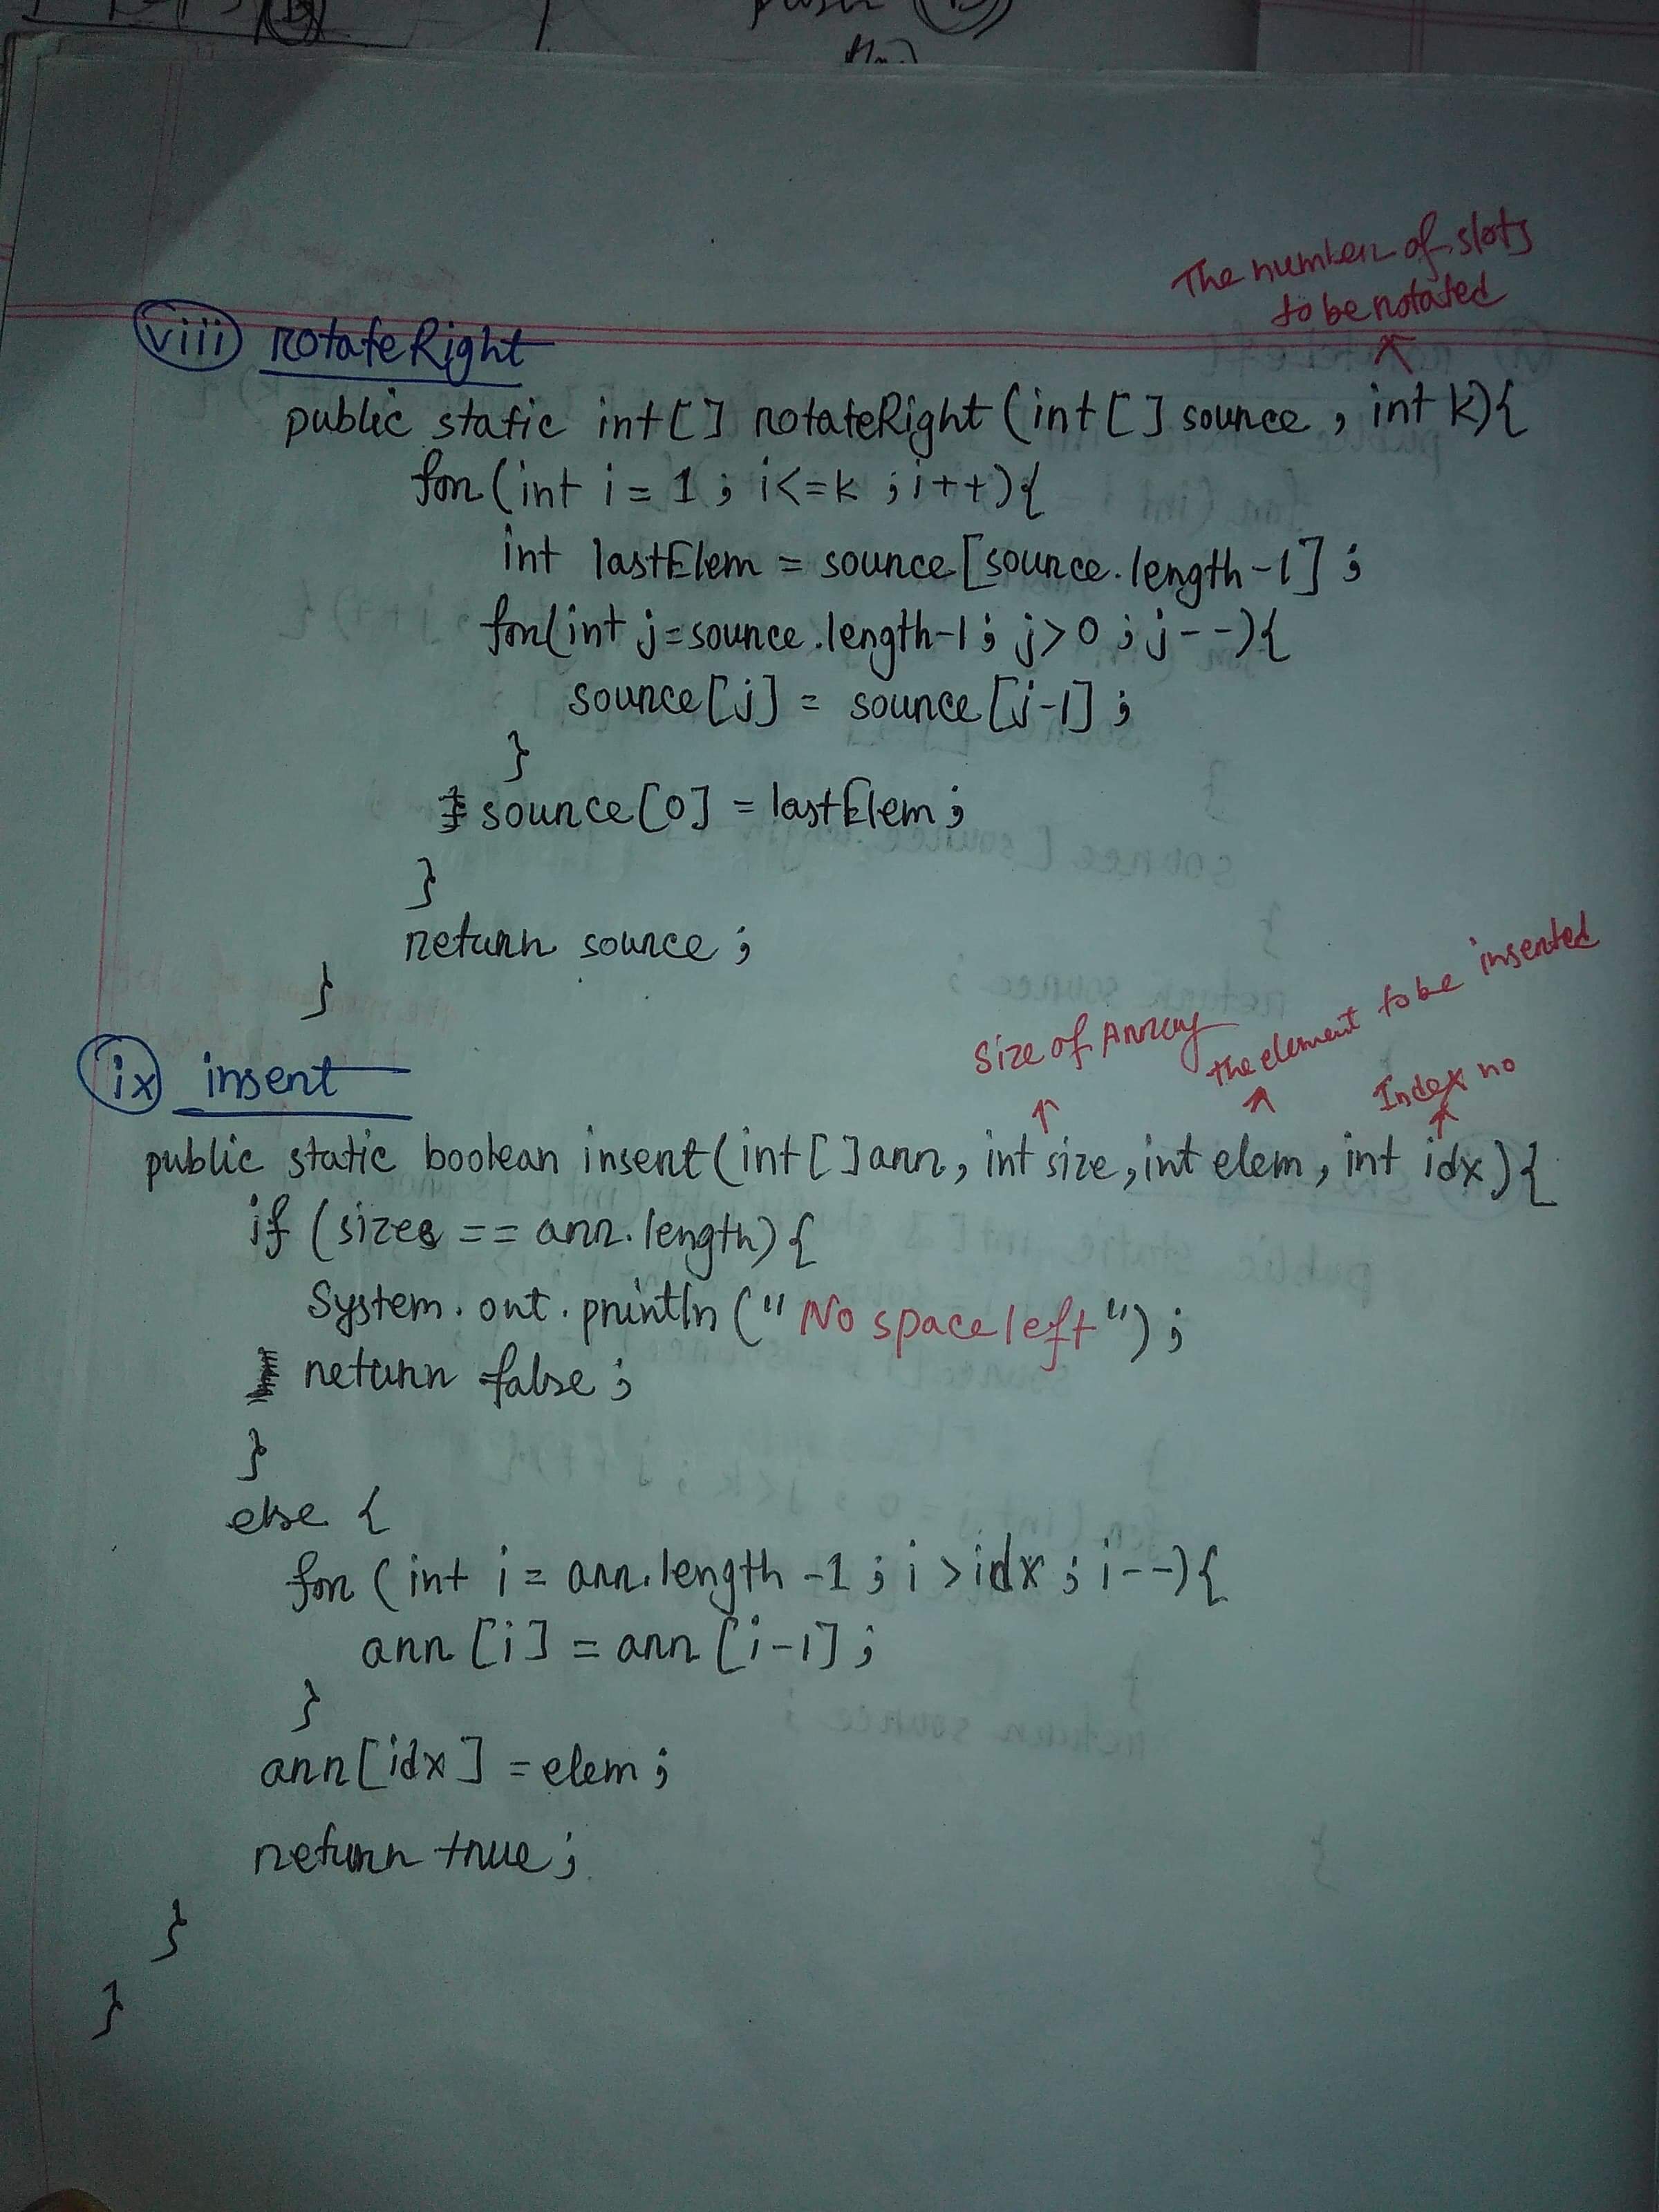 push
The number of slots
to be rotated
viii rotateRight
public static int[] rotateRight(int[] source, int k){
for(int i = 1; i<=k; i++){
int lastElem = source[source.length-1];
for(int j=source.length-1; j>0; j--){
source[j] = source[j-1];
}
source[0] = lastElem;
}
return source;
}
Size of Array
the element to be inserted
Index no
ix insert
public static boolean insert(int[] arr, int size, int elem, int idx){
if (size == arr.length){
System.out.println("No space left");
return false;
}
else {
for (int i = arr.length-1; i>idx; i--){
arr[i] = arr[i-1];
}
arr[idx] = elem;
return true;
}
}